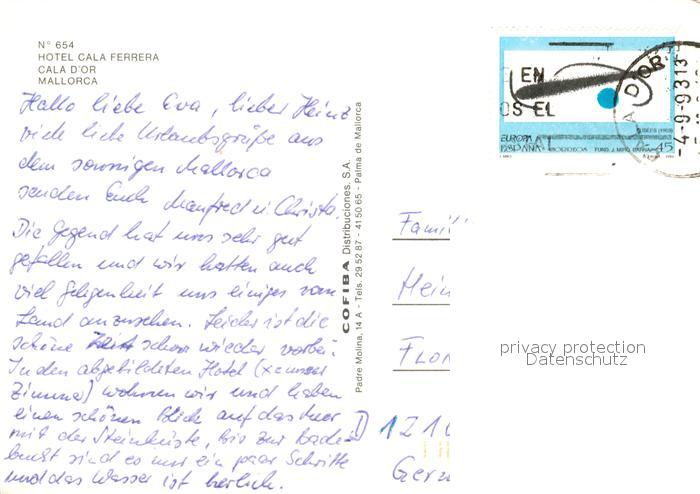 N° 654
HOTEL CALA FERRERA
CALA D'OR
MALLORCA
Hallo liebe Eva, lieber Heinz
viele liebe Urlaubsgrüße aus
dem sonnigen Mallorca
senden Euch Manfred u. Christa.
Die Gegend hat uns sehr gut
gefallen und wir hatten auch
viel Geligenheit uns einiges vom
Land anzusehen. Leider ist die
schöne Zeit schon wieder vorbei.
In den abgebildeten Hotel (x unser
Zimmer) wohnen wir und haben
einen schönen Blick auf das Meer
mit der Steinküste, bis zur Bade-
bucht sind es nur ein paar Schritte
und das Wasser ist herlich.
COFIBA Distribuciones, S.A.
Padre Molina, 14 A - Tels. 29 52 87 - 41 50 65 - Palma de Mallorca
EN
OS EL
EUROPA
ESPAÑA
45
D'OR
-4-9-93 13
Famil
Hein
FLO
D 121
Gerz
privacy protection
Datenschutz